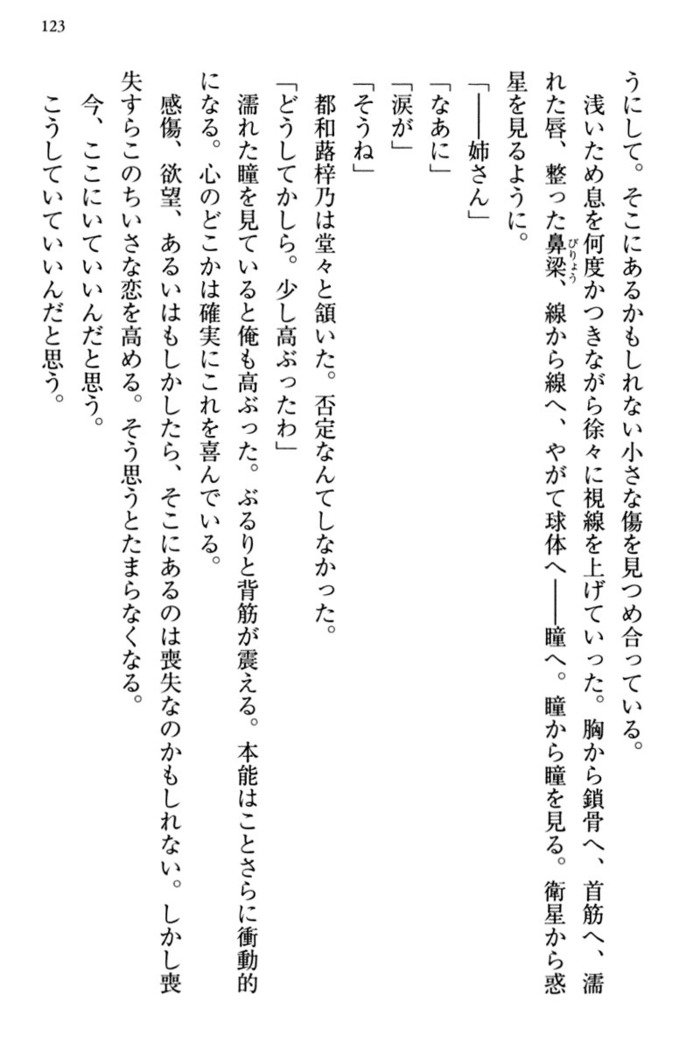 123
うにして。そこにあるかもしれない小さな傷を見つめ合っている。
　浅いため息を何度かつきながら徐々に視線を上げていった。胸から鎖骨へ、首筋へ、濡
れた唇、整った鼻梁、線から線へ、やがて球体へ――瞳へ。瞳から瞳を見る。衛星から惑
びりょう
星を見るように。
「――姉さん」
「なあに」
「涙が」
「そうね」
　都和蕗梓乃は堂々と頷いた。否定なんてしなかった。
「どうしてかしら。少し高ぶったわ」
　濡れた瞳を見ていると俺も高ぶった。ぶるりと背筋が震える。本能はことさらに衝動的
になる。心のどこかは確実にこれを喜んでいる。
　感傷、欲望、あるいはもしかしたら、そこにあるのは喪失なのかもしれない。しかし喪
失すらこのちいさな恋を高める。そう思うとたまらなくなる。
　今、ここにいていいんだと思う。
　こうしていていいんだと思う。